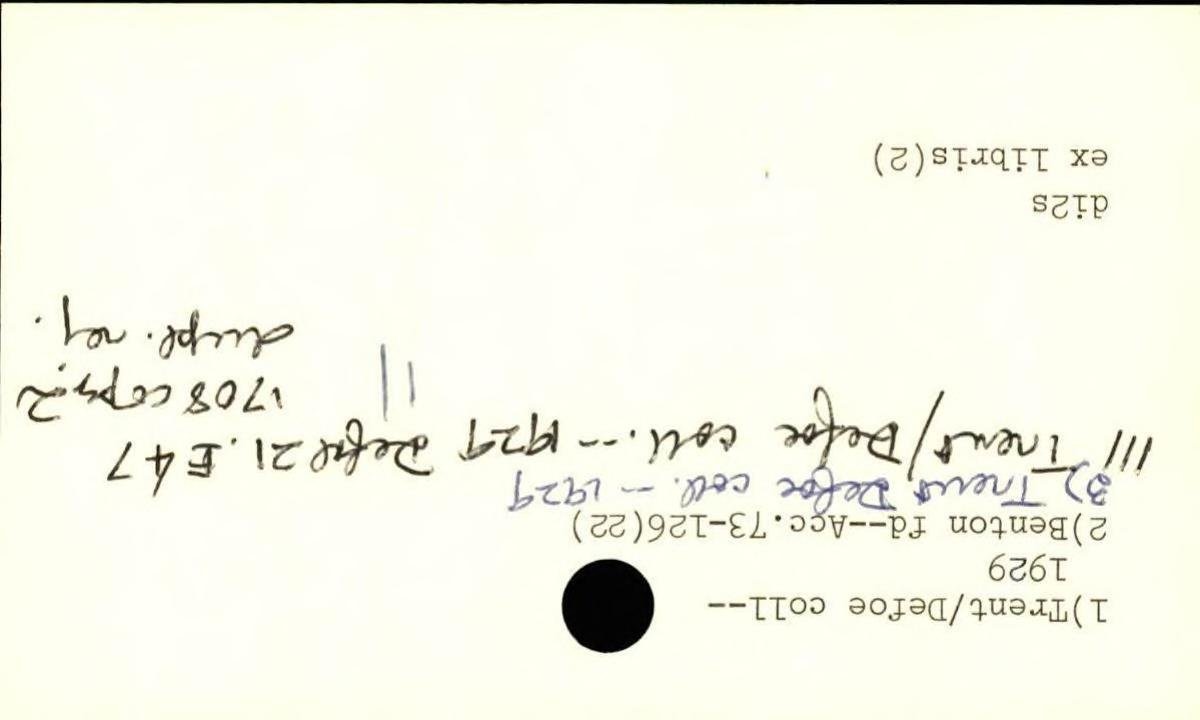 1)Trent/Defoe coll--
1929
2)Benton fd--Acc.73-126(22)
3) Trent Defoe coll. -- 1929
111 Trent/Defoe coll. -- 1929 Defoe 21.E47
1708 copy 2
dupl. rej.
di2s
ex libris(2)